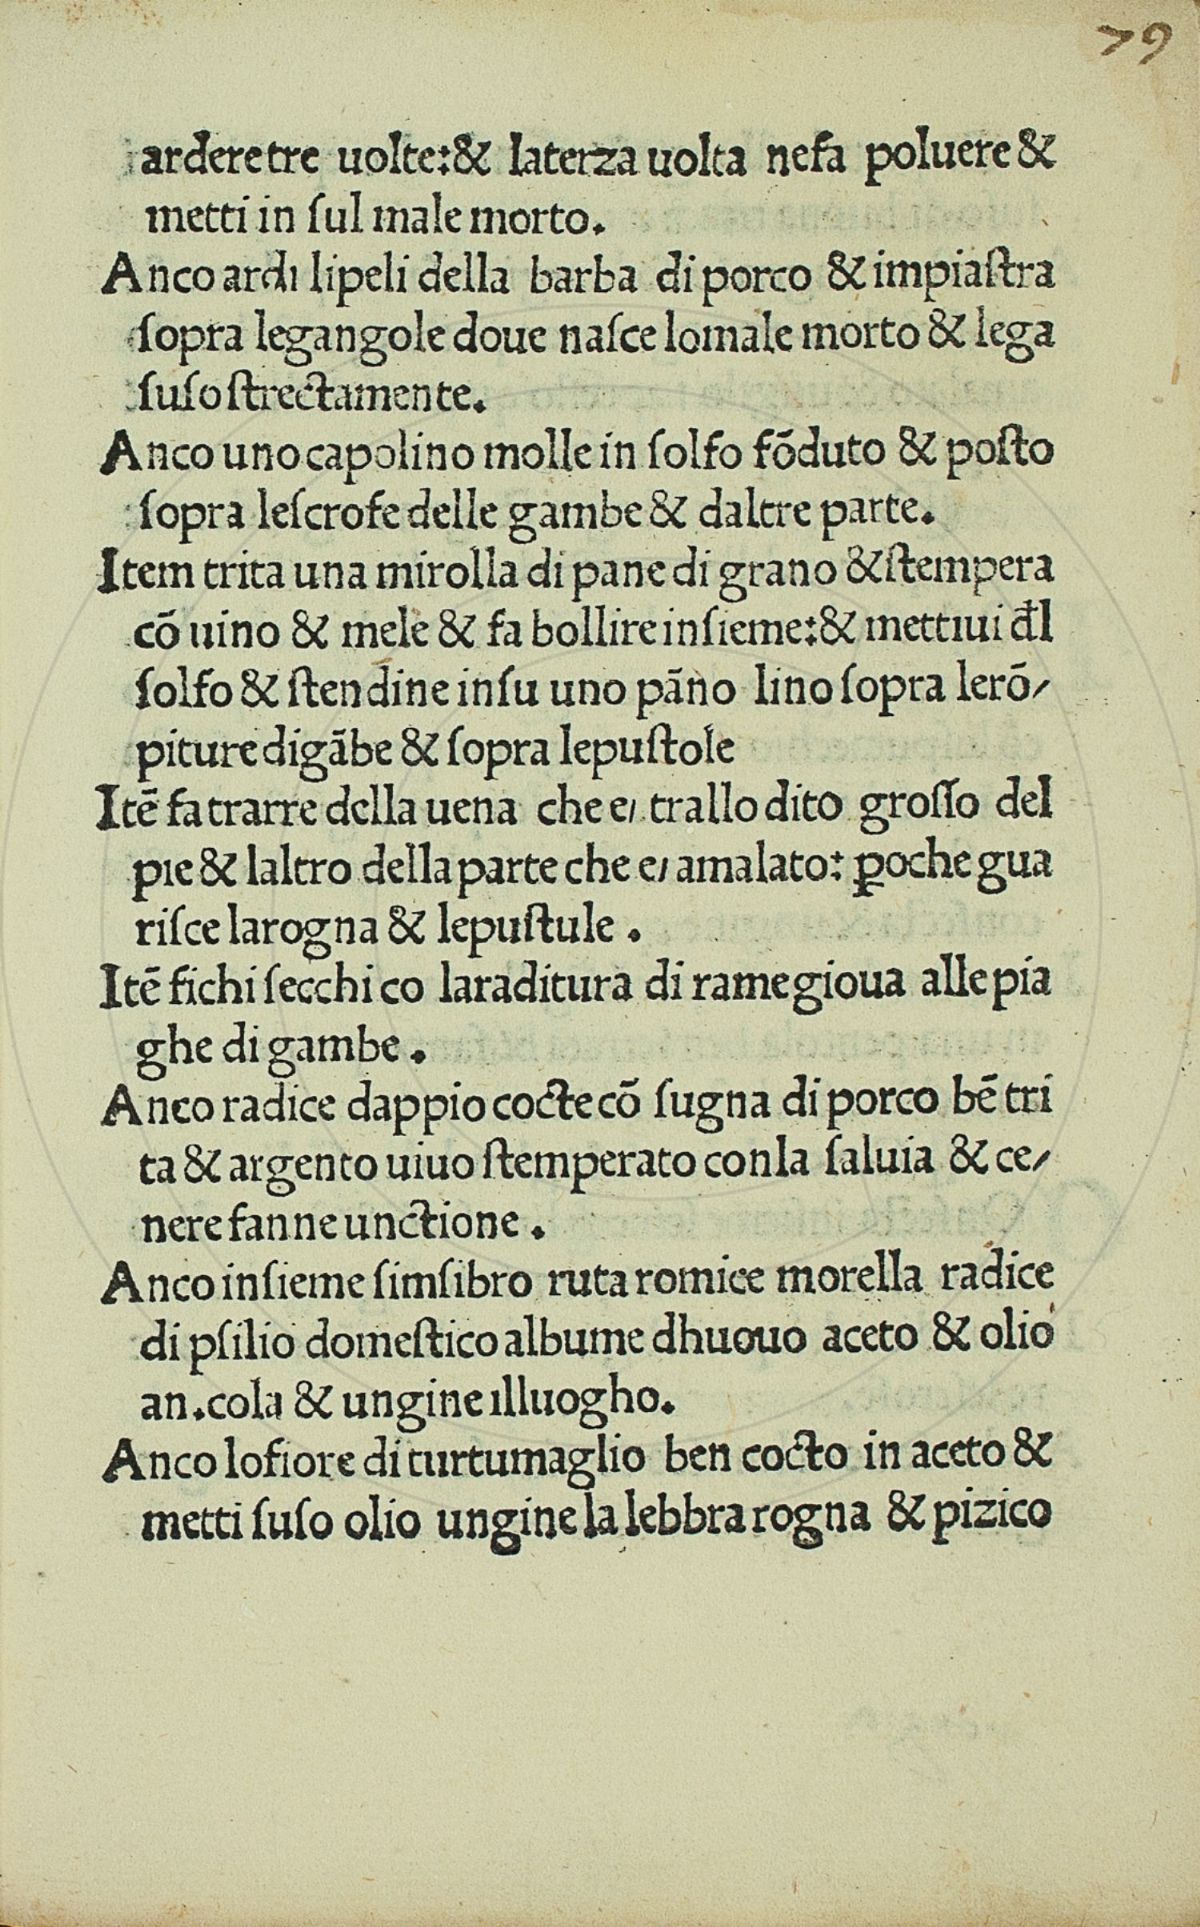 79
ardere tre uolte:& laterza uolta nefa poluere &
metti in ſul male morto.
Anco ardi lipeli della barba di porco & impiaſtra
ſopra legangole doue naſce lomale morto & lega
ſuſo ſtrectamente.
Anco uno capolino molle in ſolfo fōduto & poſto
ſopra leſcrofe delle gambe & daltre parte.
Item trita una mirolla di pane di grano &ſtempera
cō uino & mele & fa bollire inſieme:& mettiui đl
ſolfo & ſtendine inſu uno pāno lino ſopra lerō/
piture digābe & ſopra lepuſtole
Itē fa trarre della uena che e/ trallo dito groſſo del
pie & laltro della parte che e/ amalato: ꝑoche gua
riſce larogna & lepuſtule .
Itē fichi ſecchi co laraditura di rame gioua alle pia
ghe di gambe .
Anco radice dappio cocte cō ſugna di porco bē tri
ta & argento uiuo ſtemperato conla ſaluia & ce/
nere fanne unctione .
Anco inſieme ſimſibro ruta romice morella radice
di pſilio domeſtico albume dhuouo aceto & olio
an.cola & ungine illuogho.
Anco lofiore di turtumaglio ben cocto in aceto &
metti ſuſo olio ungine la lebbra rogna & pizico